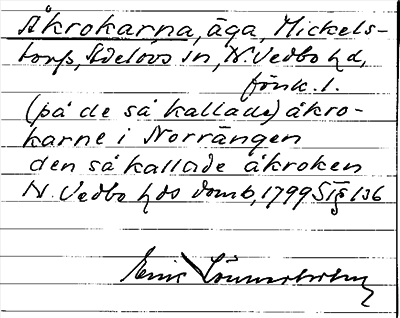 Åkrokarna, äga, Mickels-
torp, Adelövs sn, N. Vedbo hd,
Jönk. l.
(på de så kallade) åkro-
karne i Norrängen
den så kallade åkroken
N. Vedbo hds domb, 1799 § 136